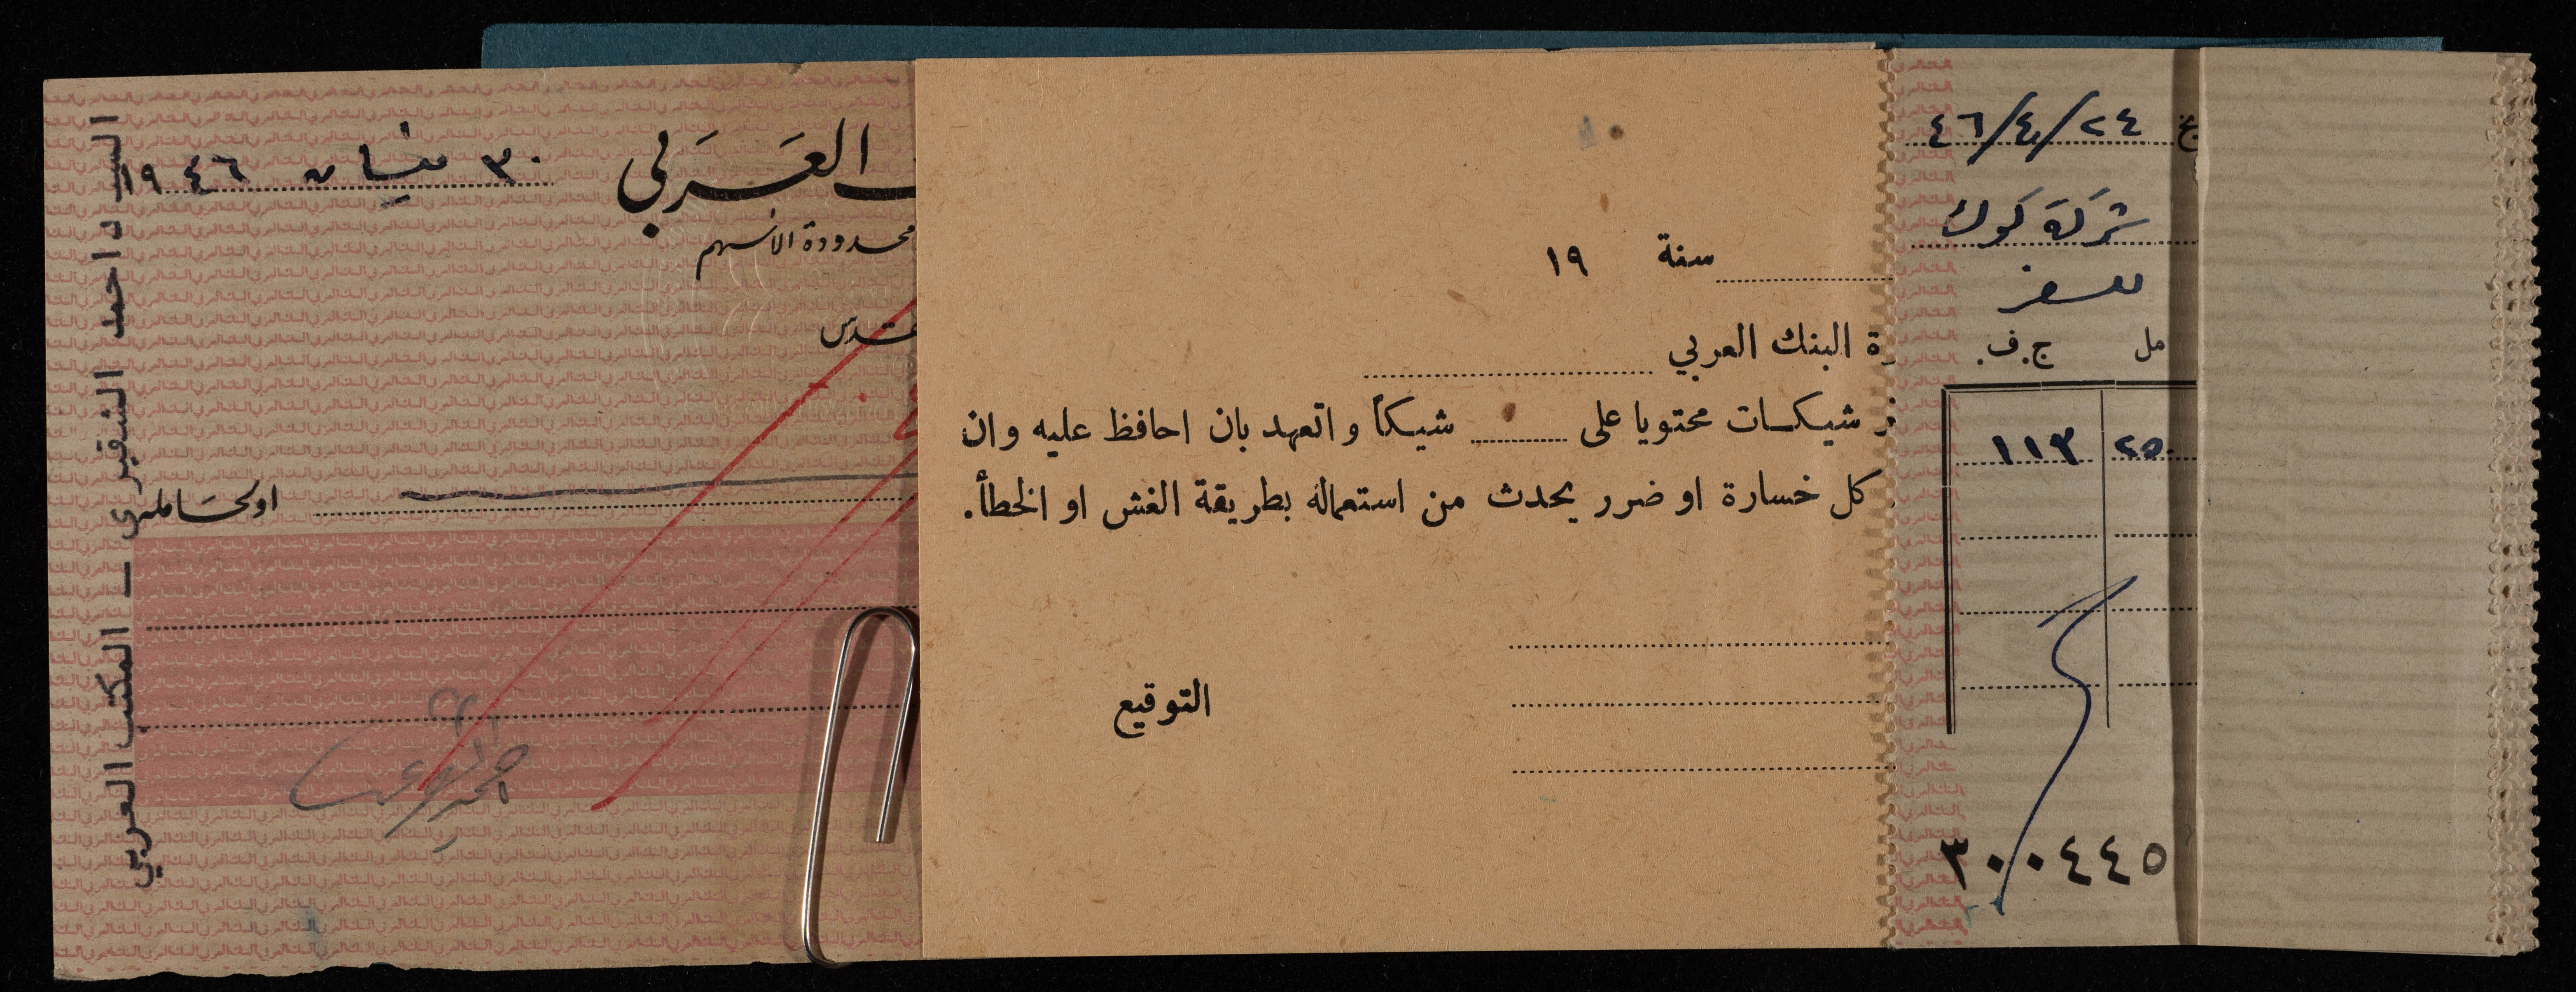 ٢٤/٤/٤٦
شركة كوك
للسفر
مل ج.ف.
٢٥٠ ١١٣
٣٠٠٤٤٥
سنة ١٩
ة البنك العربي
شيكات محتويا على شيكاً واتعهد بان احافظ عليه وان
كل خسارة او ضرر يحدث من استعماله بطريقة الغش او الخطأ.
التوقيع
العربي
٣٠ نيسان ١٩٤٦
محدودة الأسهم
او لحامله
السيد احمد الشقيري - المكتب العربي